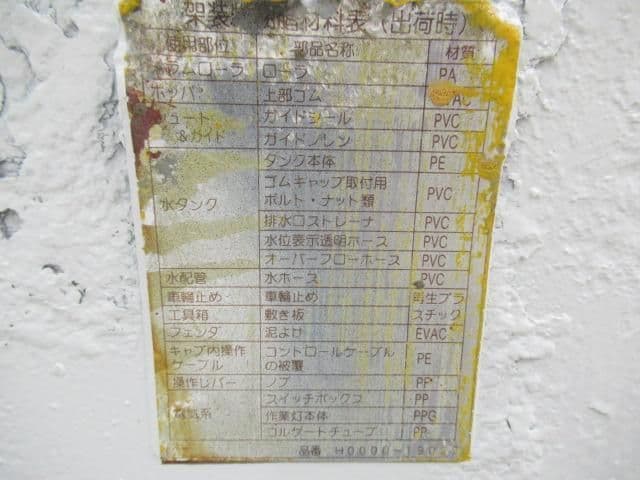 架装 材料表(出荷時)
使用部位 部品名称 材質
ラムローラ ローラ PA
ホッパ 上部ゴム
シュート ガイドシール PVC
&ガイド ガイドノレン PVC
タンク本体 PE
ゴムキャップ取付用
ボルト・ナット類 PVC
水タンク
排水口ストレーナ PVC
水位表示透明ホース PVC
オーバーフローホース PVC
水配管 水ホース PVC
車輪止め 車輪止め 再生プラ
工具箱 敷き板 スチック
フェンダ 泥よけ EVAC
キャブ内操作 コントロールケーブル
ケーブル の被覆 PE
操作レバー ノブ PP
スイッチボックス PP
電気系 作業灯本体 PPG
コルゲートチューブ PP
品番 H0000-190